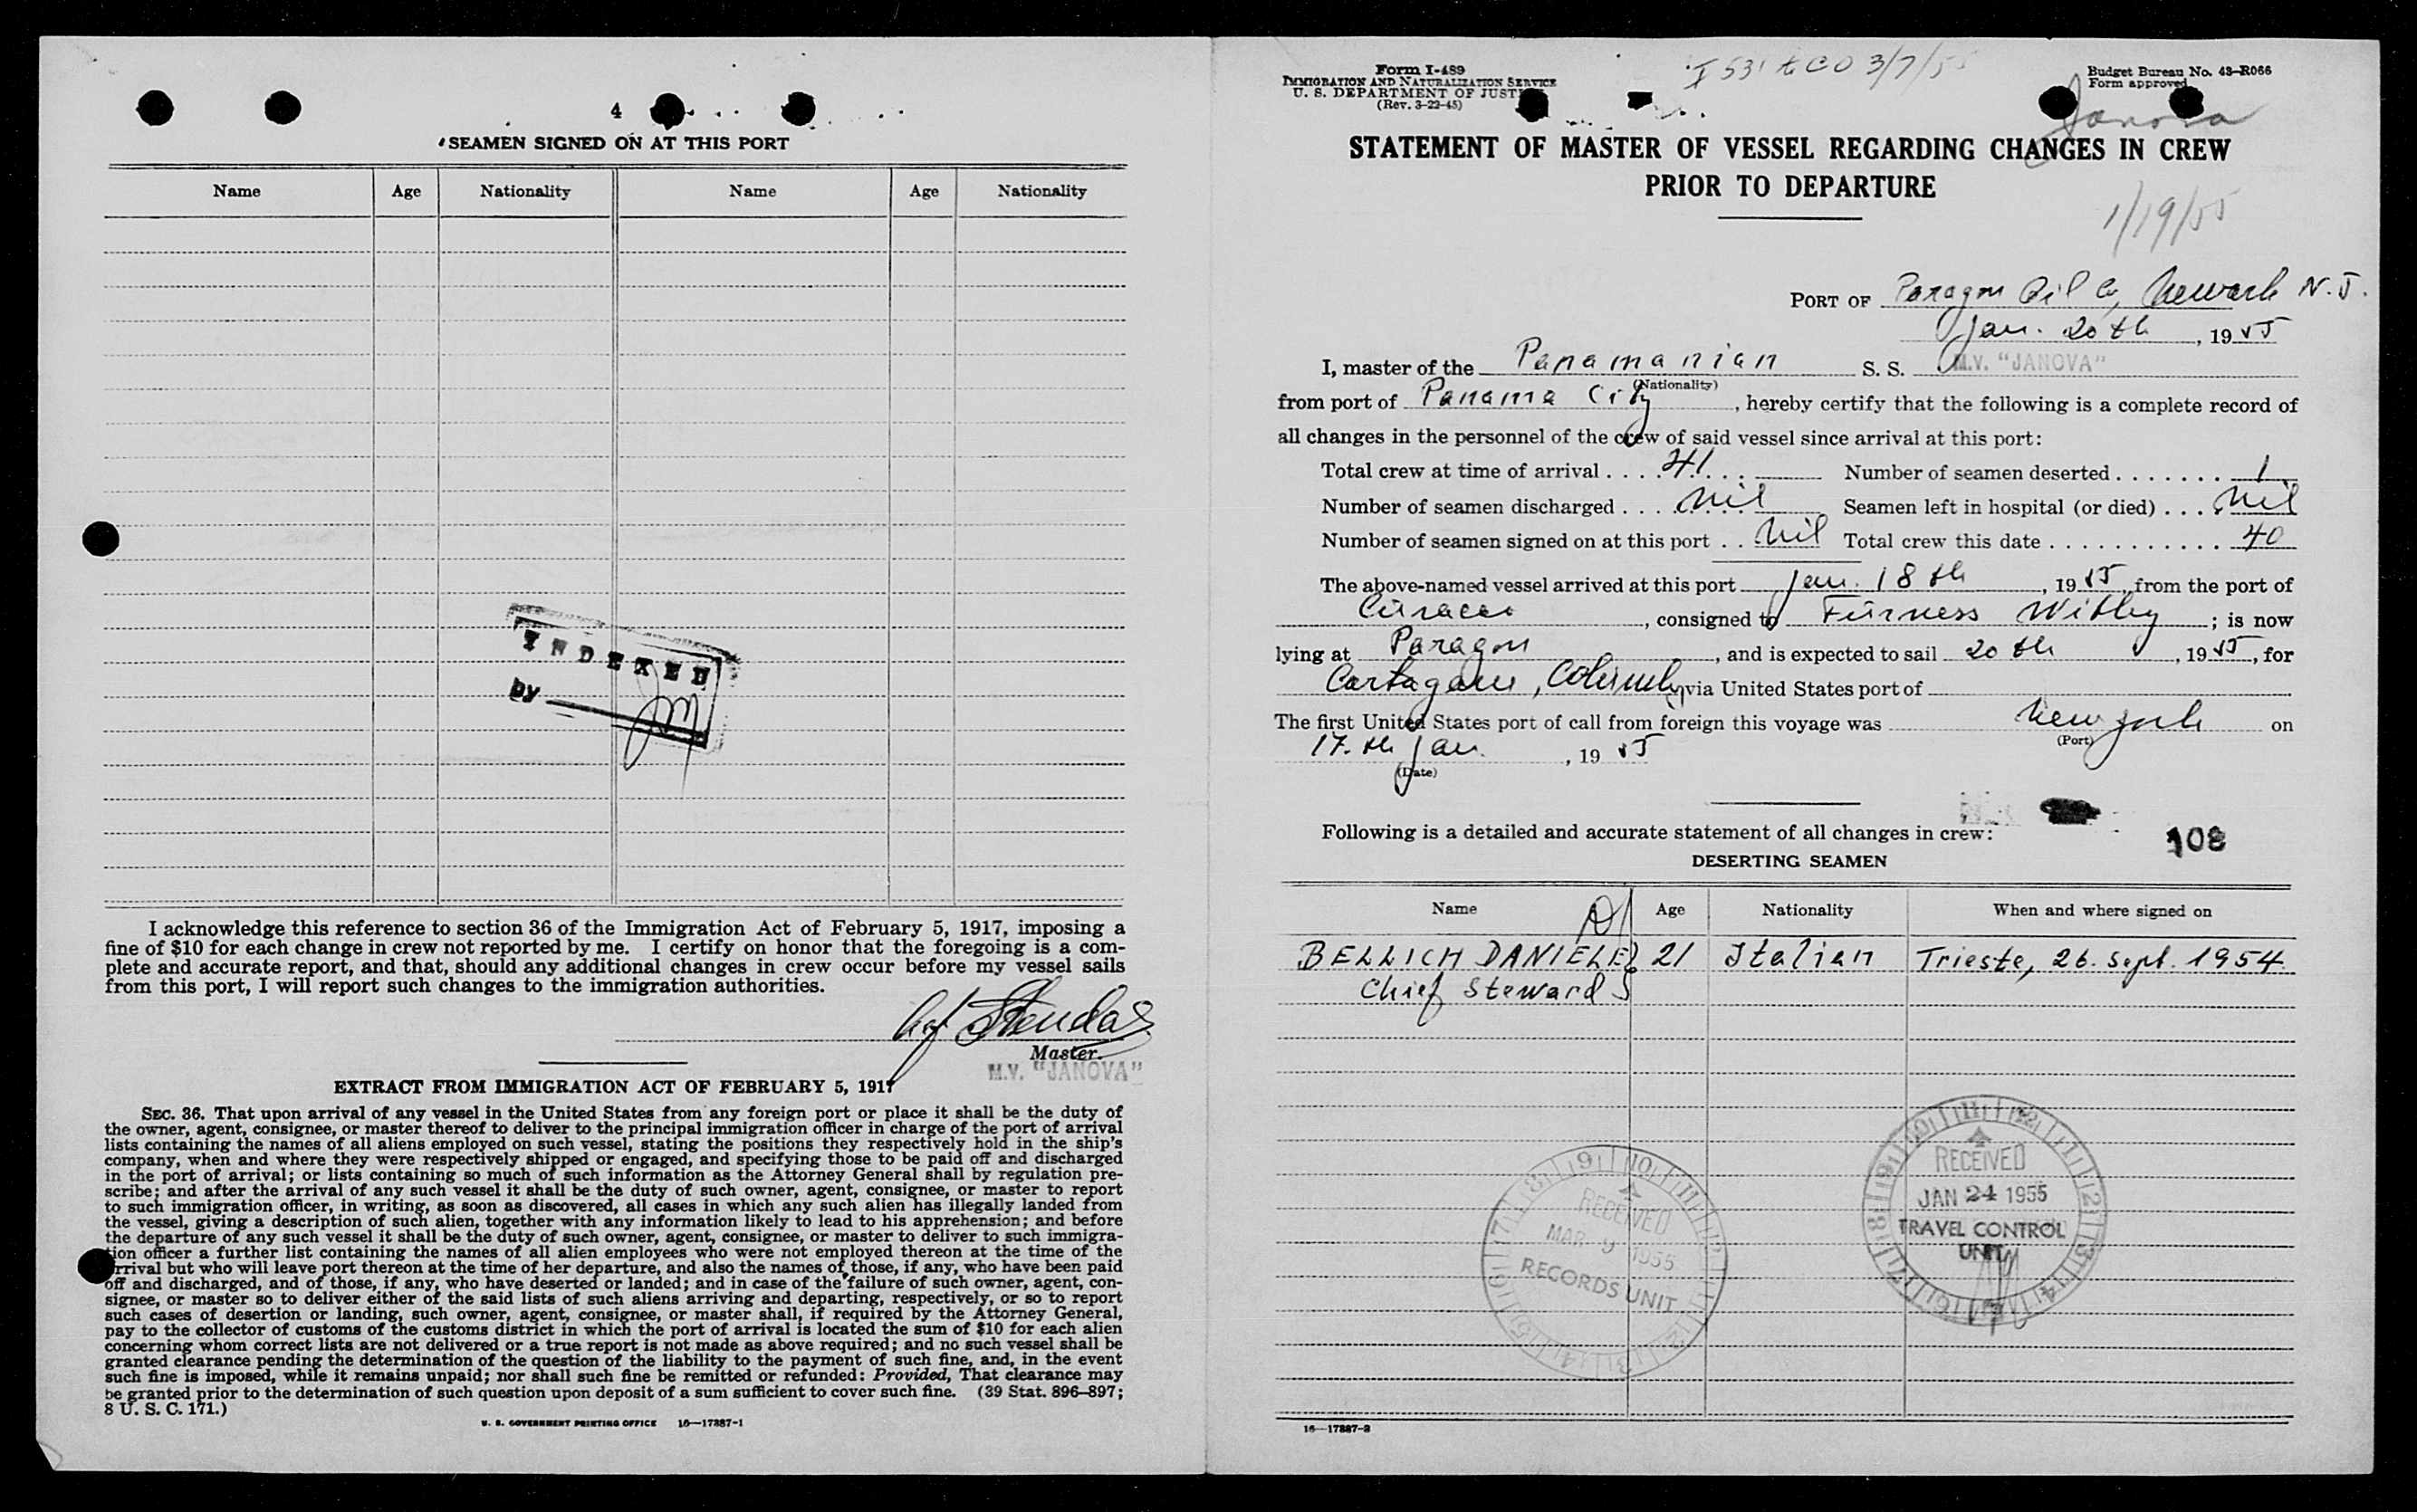 4
SEAMEN SIGNED ON AT THIS PORT
Name Age Nationality Name Age Nationality
INDEXED
by
I acknowledge this reference to section 36 of the Immigration Act of February 5, 1917, imposing a
fine of $10 for each change in crew not reported by me. I certify on honor that the foregoing is a com-
plete and accurate report, and that, should any additional changes in crew occur before my vessel sails
from this port, I will report such changes to the immigration authorities.
Master.
M.V. "JANOVA"
EXTRACT FROM IMMIGRATION ACT OF FEBRUARY 5, 1917
SEC. 36. That upon arrival of any vessel in the United States from any foreign port or place it shall be the duty of
the owner, agent, consignee, or master thereof to deliver to the principal immigration officer in charge of the port of arrival
lists containing the names of all aliens employed on such vessel, stating the positions they respectively hold in the ship's
company, when and where they were respectively shipped or engaged, and specifying those to be paid off and discharged
in the port of arrival; or lists containing so much of such information as the Attorney General shall by regulation pre-
scribe; and after the arrival of any such vessel it shall be the duty of such owner, agent, consignee, or master to report
to such immigration officer, in writing, as soon as discovered, all cases in which any such alien has illegally landed from
the vessel, giving a description of such alien, together with any information likely to lead to his apprehension; and before
the departure of any such vessel it shall be the duty of such owner, agent, consignee, or master to deliver to such immigra-
tion officer a further list containing the names of all alien employees who were not employed thereon at the time of the
arrival but who will leave port thereon at the time of her departure, and also the names of those, if any, who have been paid
off and discharged, and of those, if any, who have deserted or landed; and in case of the failure of such owner, agent, con-
signee, or master so to deliver either of the said lists of such aliens arriving and departing, respectively, or so to report
such cases of desertion or landing, such owner, agent, consignee, or master shall, if required by the Attorney General,
pay to the collector of customs of the customs district in which the port of arrival is located the sum of $10 for each alien
concerning whom correct lists are not delivered or a true report is not made as above required; and no such vessel shall be
granted clearance pending the determination of the question of the liability to the payment of such fine, and, in the event
such fine is imposed, while it remains unpaid; nor shall such fine be remitted or refunded: Provided, That clearance may
be granted prior to the determination of such question upon deposit of a sum sufficient to cover such fine. (39 Stat. 896-897;
8 U. S. C. 171.)
U. S. GOVERNMENT PRINTING OFFICE 16—17887-1
Form I-489
IMMIGRATION AND NATURALIZATION SERVICE
U. S. DEPARTMENT OF JUSTICE
(Rev. 3-22-45)
I 531 3/7/55
Budget Bureau No. 43-R066
Form approved
Janova
STATEMENT OF MASTER OF VESSEL REGARDING CHANGES IN CREW
PRIOR TO DEPARTURE
1/19/55
PORT OF Paragon Oil Co, Newark N. J.
Jan. 20th, 1955
I, master of the Panamanian S. S. M.V. "JANOVA"
(Nationality)
from port of Panama City, hereby certify that the following is a complete record of
all changes in the personnel of the crew of said vessel since arrival at this port:
Total crew at time of arrival .... 41 Number of seamen deserted ....... 1
Number of seamen discharged .... Nil Seamen left in hospital (or died) .... Nil
Number of seamen signed on at this port .. Nil Total crew this date ............ 40
The above-named vessel arrived at this port Jan. 18th, 1955, from the port of
Curacao, consigned to Furness Withy; is now
lying at Paragon, and is expected to sail 20th, 1955, for
Cartagena, Columby via United States port of
The first United States port of call from foreign this voyage was New York on
(Port)
17.th Jan., 1955
(Date)
Following is a detailed and accurate statement of all changes in crew:
108
DESERTING SEAMEN
Name Age Nationality When and where signed on
BELLICH DANIELE 21 Italian Trieste, 26. Sept. 1954
Chief Steward
RECEIVED
JAN 24 1955
TRAVEL CONTROL
UNIT
RECEIVED
MAR 9 1955
RECORDS UNIT
16—17887-2